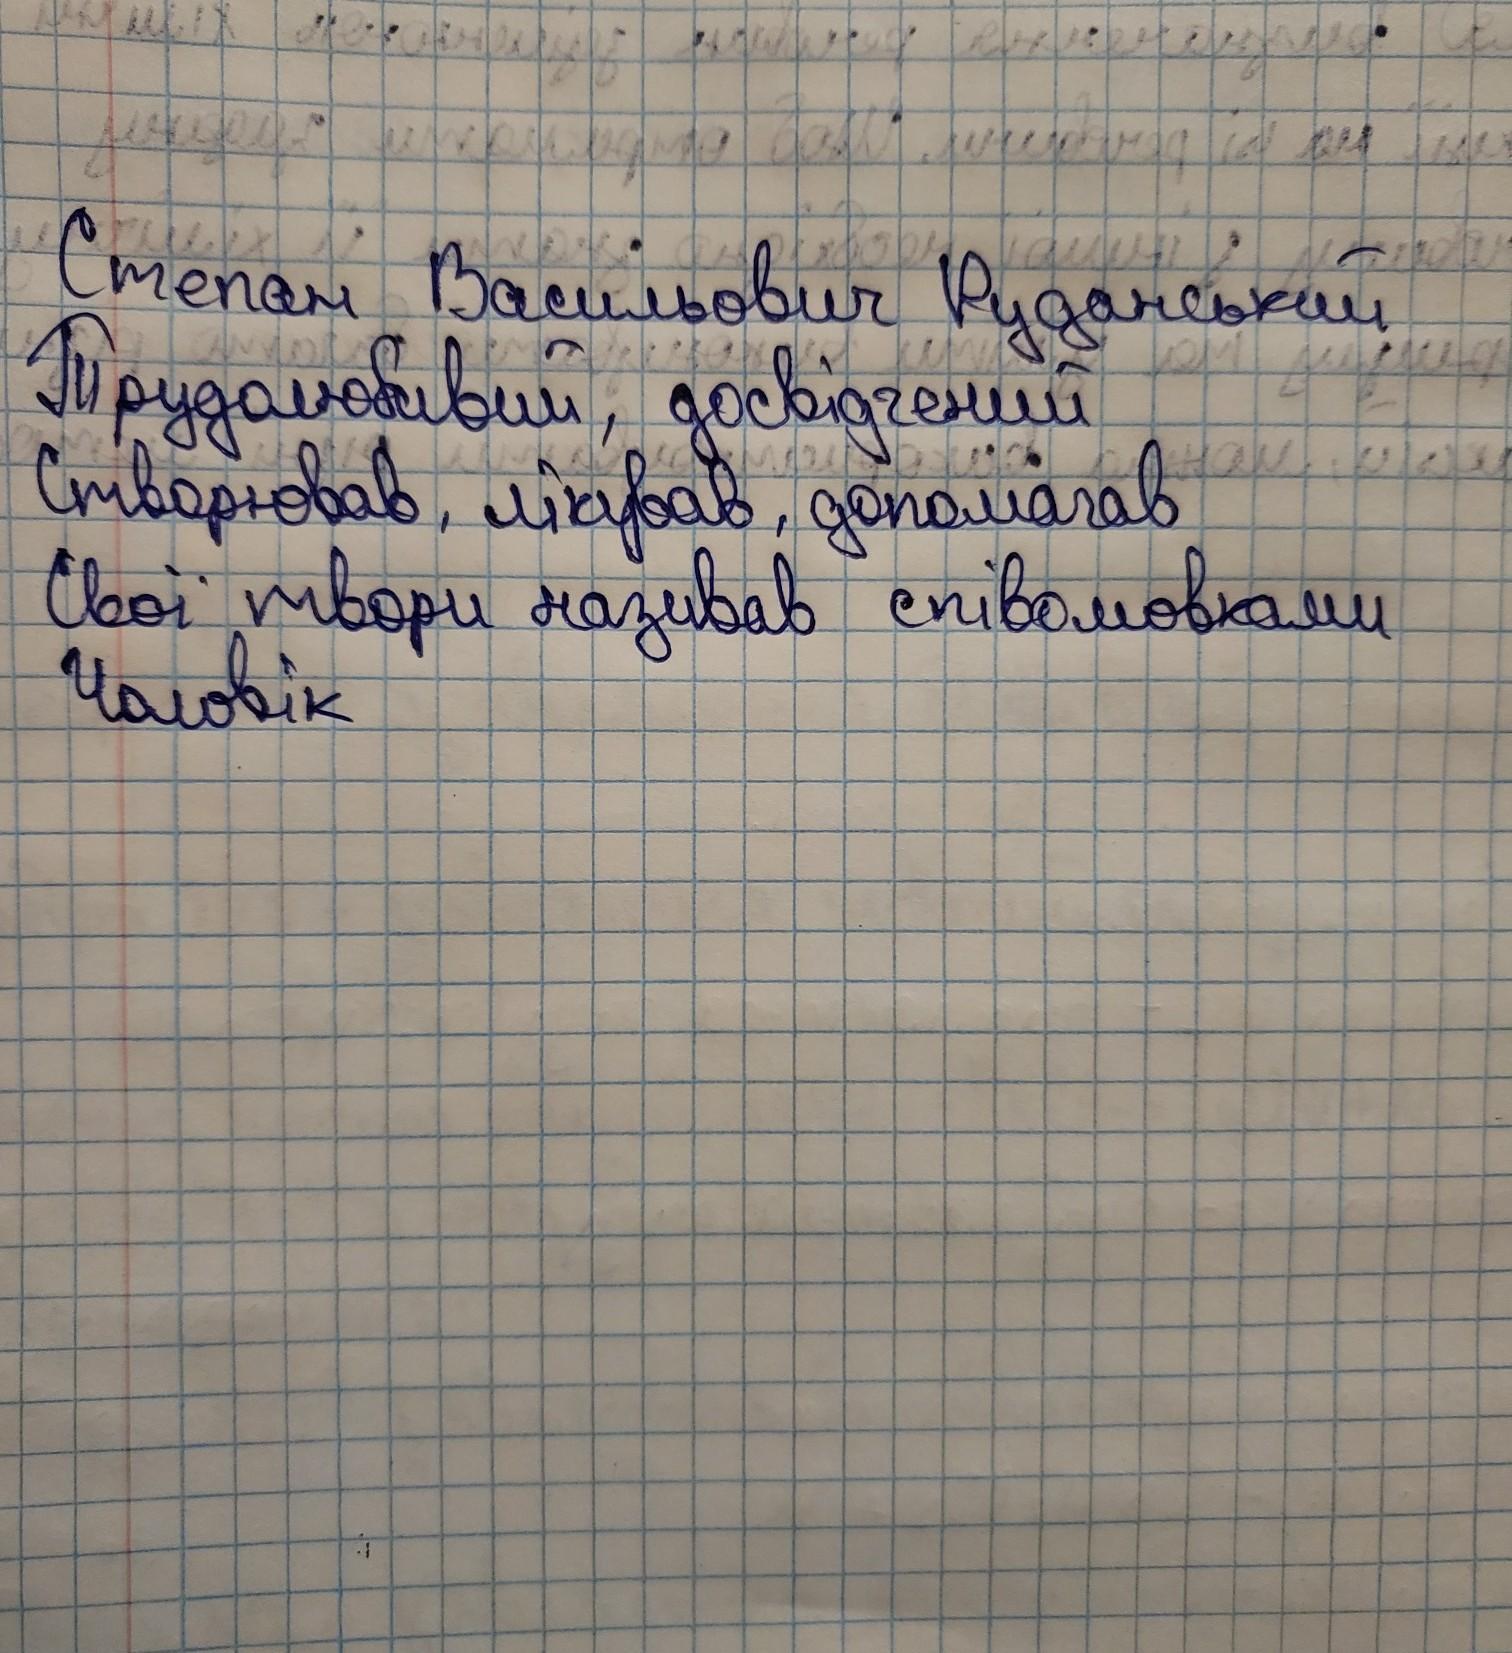 Степан Васильович Руданський
Трудолюбивий, досвідчений
Створював, лікував, допомагав
Свої твори називав співомовками
Чоловік